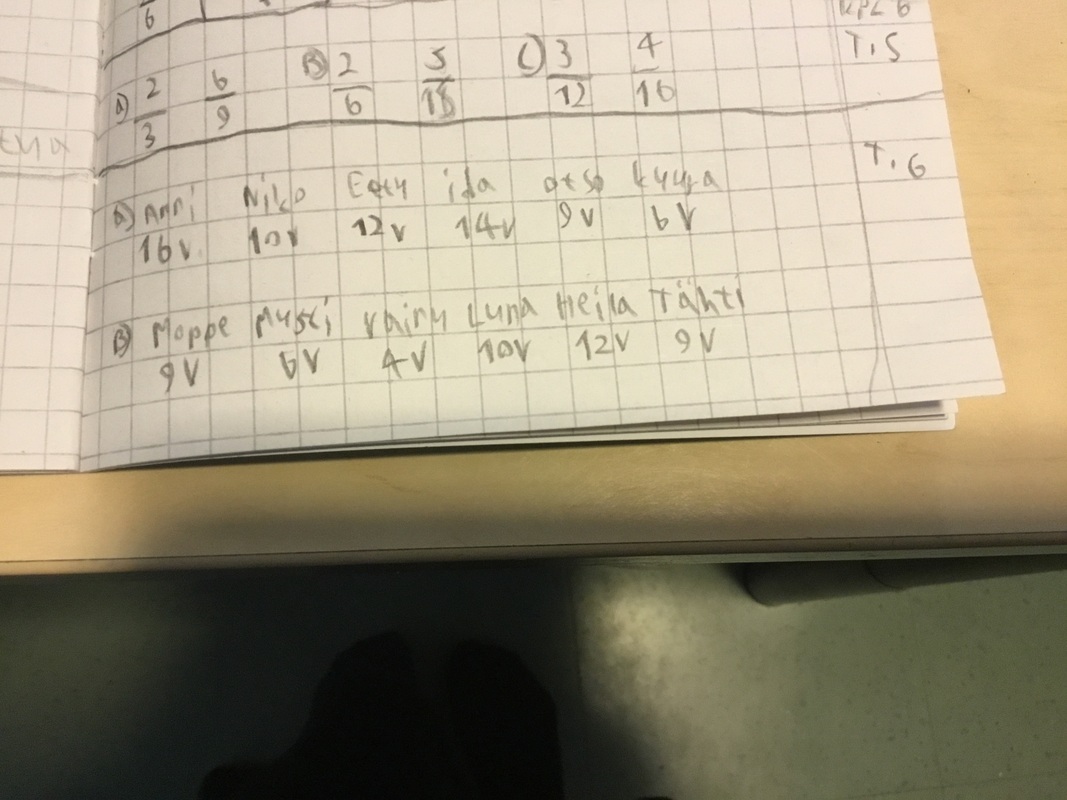 6
KPL 6
T.5
A) 2/3 6/9 B) 2/6 5/15 C) 3/12 4/16
T.6
A) Anni Niko Eetu ida otso
16v 10v 12v 14v 9v 6v
B) Moppe Musti Vainu Luna Heila Tähti
9v 6v 4v 10v 12v 9v